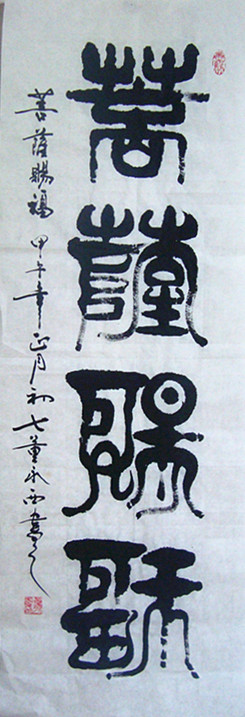 菩薩賜福
菩薩賜福 甲午年正月初七董永西書之